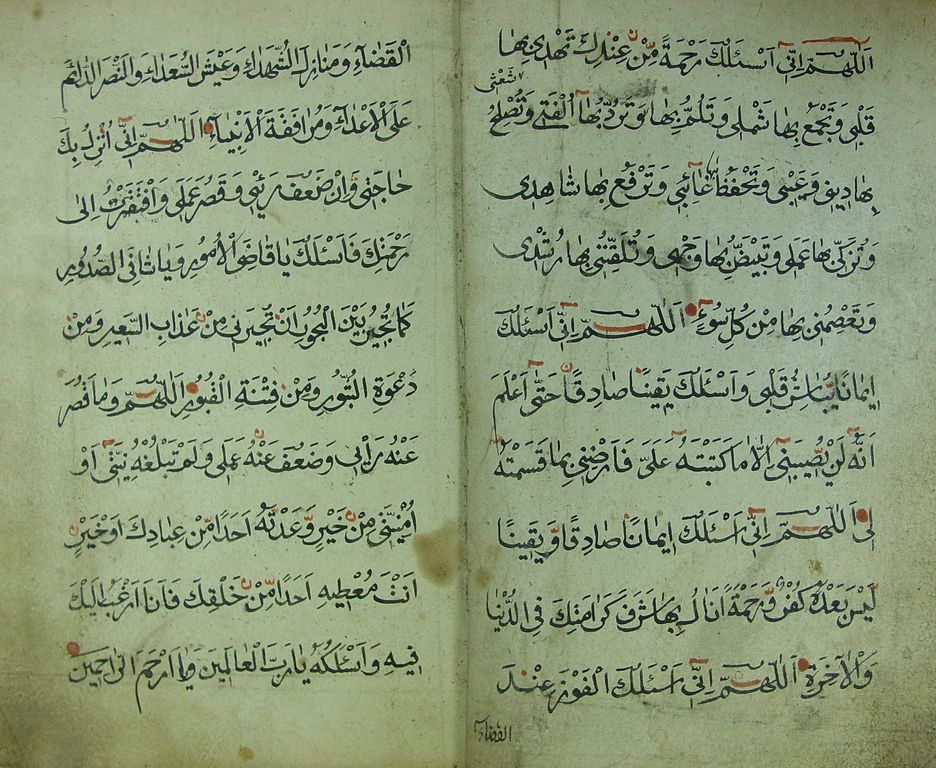 اَللّٰهُمَّ اِنّٖي اَسْئَلُكَ رَحْمَةً مِنْ عِنْدِكَ تَهْدٖي بِهَا
شَعْثٖي
قَلْبٖي وَتَجْمَعُ بِهَا شَمْلٖي وَتَلُمُّ بِهَا وَتَرُدُّ بِهَا اُلْفَتٖي وَتُصْلِحُ
بِهَا دٖينٖي وَ وَتَحْفَظُ بِهَا غَائِبٖي وَتَرْفَعُ بِهَا شَاهِدٖي
وَتُزَكّٖي بِهَا عَمَلٖي وَتُبَيِّضُ بِهَا وَجْهٖي وَتُلَقِّنُنٖي بِهَا رُشْدٖي
وَتَعْصِمُنٖي بِهَا مِنْ كُلِّ سُوءٍ اَللّٰهُمَّ اِنّٖي اَسْئَلُكَ
اٖيمَانًا يُبَاشِرُ قَلْبٖي وَاَسْئَلُكَ يَقٖينًا صَادِقًا حَتّٰى اَعْلَمَ
اَنَّهُ لَنْ يُصٖيبَنٖي اِلَّا مَا كَتَبْتَهُ عَلَيَّ فَارْضِنٖي بِمَا قَسَمْتَهُ
لٖي اَللّٰهُمَّ اِنّٖي اَسْئَلُكَ اٖيمَانًا صَادِقًا وَيَقٖينًا
لَيْسَ بَعْدَهُ كُفْرٌ وَرَحْمَةً اَنَالُ بِهَا شَرَفَ كَرَامَتِكَ فِي الدُّنْيَا
وَالْاٰخِرَةِ اَللّٰهُمَّ اِنّٖي اَسْئَلُكَ الْفَوْزَ عِنْدَ
القضاء
الْقَضَاءِ وَمَنَازِلَ الشُّهَدَاءِ وَعَيْشَ السُّعَدَاءِ وَالنَّصْرَ الدَّائِمَ
عَلَى الْاَعْدَاءِ وَمُرَافَقَةَ الْاَنْبِيَاءِ اَللّٰهُمَّ اِنّٖي اُنْزِلُ بِكَ
حَاجَتٖي وَاِنْ ضَعُفَ رَئْيٖي وَقَصُرَ عَمَلٖي وَافْتَقَرْتُ اِلٰى
رَحْمَتِكَ فَاَسْئَلُكَ يَا قَاضِيَ الْاُمُورِ وَيَا شَافِيَ الصُّدُورِ
كَمَا تُجٖيرُ بَيْنَ الْبُحُورِ اَنْ تُجٖيرَنٖي مِنْ عَذَابِ السَّعٖيرِ وَمِنْ
دَعْوَةِ الثُّبُورِ وَمِنْ فِتْنَةِ الْقُبُورِ اَللّٰهُمَّ وَمَا قَصُرَ
عَنْهُ رَاْيٖي وَضَعُفَ عَنْهُ عَمَلٖي وَلَمْ تَبْلُغْهُ نِيَّتٖي اَوْ
اُمْنِيَّتٖي مِنْ خَيْرٍ وَعَدْتَهُ اَحَدًا مِنْ عِبَادِكَ اَوْ خَيْرٍ
اَنْتَ مُعْطٖيهِ اَحَدًا مِنْ خَلْقِكَ فَاَنَا اَرْغَبُ اِلَيْكَ
فٖيهِ وَاَسْئَلُكَهُ يَا رَبَّ الْعَالَمٖينَ وَيَا اَرْحَمَ الرَّاحِمٖينَ